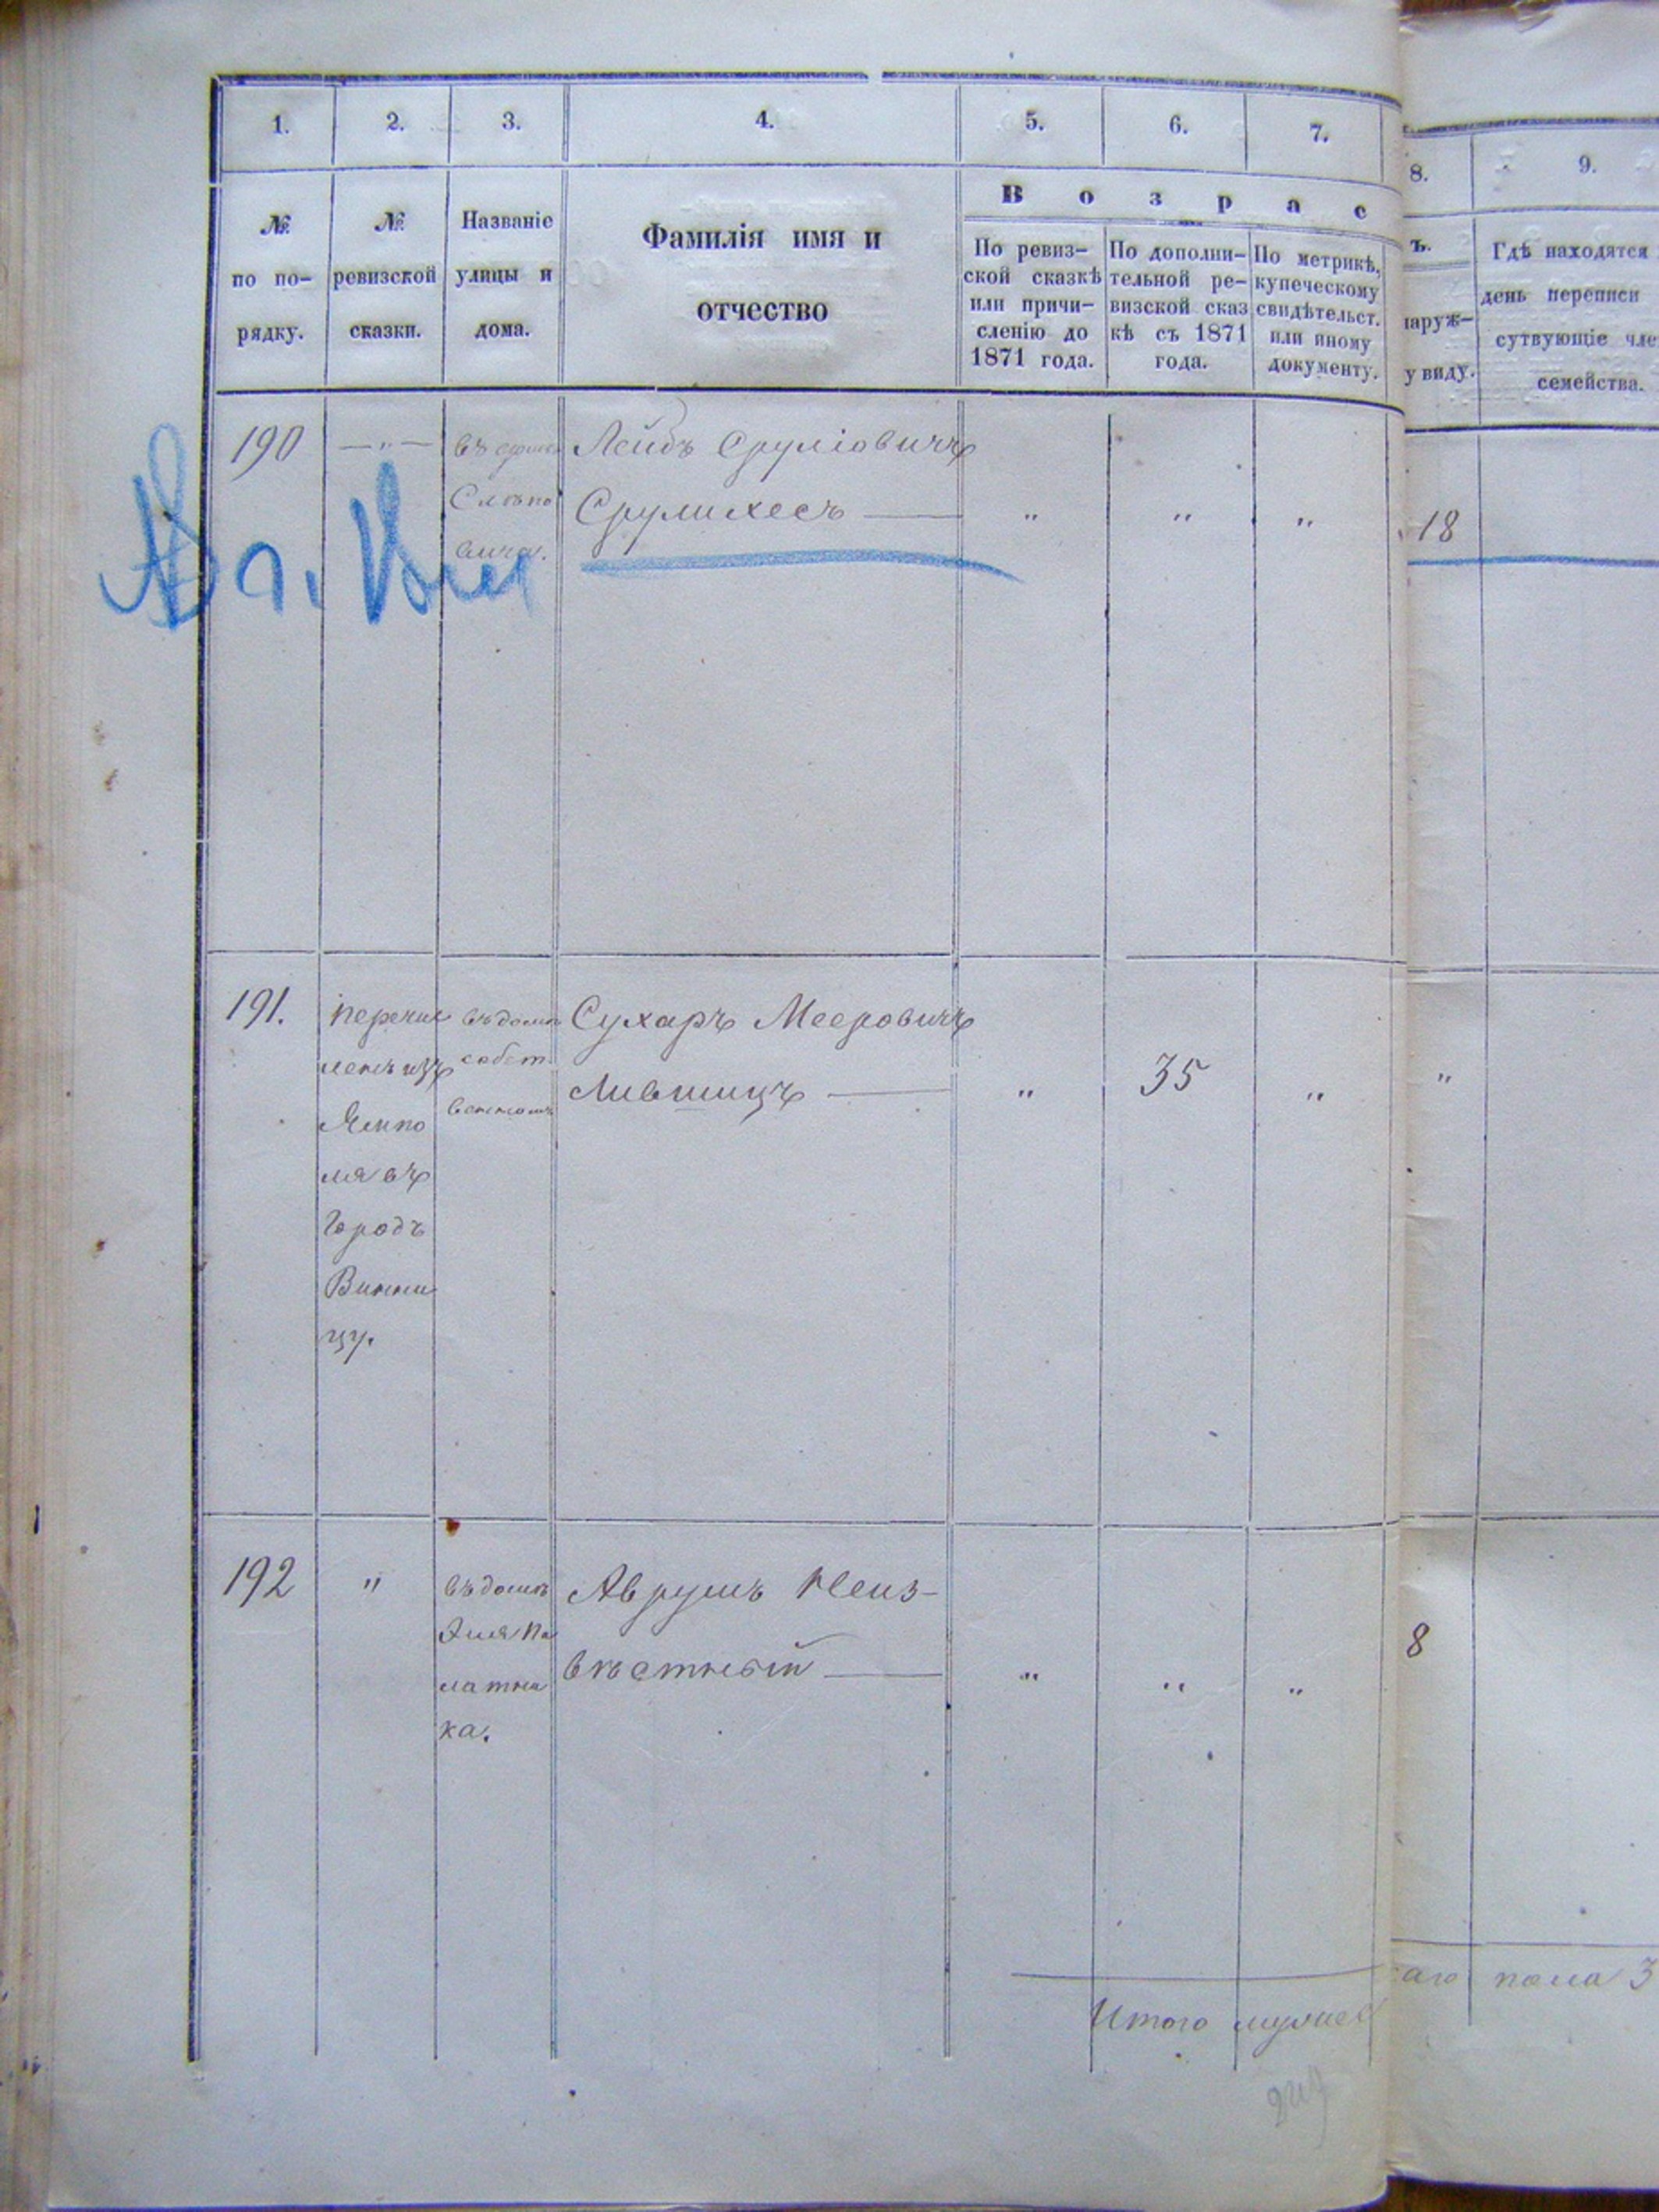 1. 2. 3. 4. 5. 6. 7. 8. 9.
№
по по-
рядку.
№
ревизской
сказки.
Названіе
улицы и
дома.
Фамилія имя и
отчество
В о з р а с
ъ.
По ревиз-
ской сказкѣ
или причи-
сленію до
1871 года.
По дополни-
тельной ре-
визской сказ
кѣ съ 1871
года.
По метрикѣ,
купеческому
свидѣтельст.
или иному
документу.
наруж-
у виду.
Гдѣ находятся
день переписи
сутвующіе чле
семейства.
190 — " —
Слѣпо
вича.
Лейбъ Сруліовичъ
Срулихесъ — " " " 18
191.
перечис
ленъ изъ
Ямпо
ля въ
Городъ
Винни
цу.
въ домѣ
собст
венномъ
Сухаръ Мееровичъ
Лившицъ — " 35 " "
192 "
въ домѣ
Эля Па
латни
ка.
Аврумъ Неиз-
вѣстный — " " " 8
Итого мужес
аго пола 3